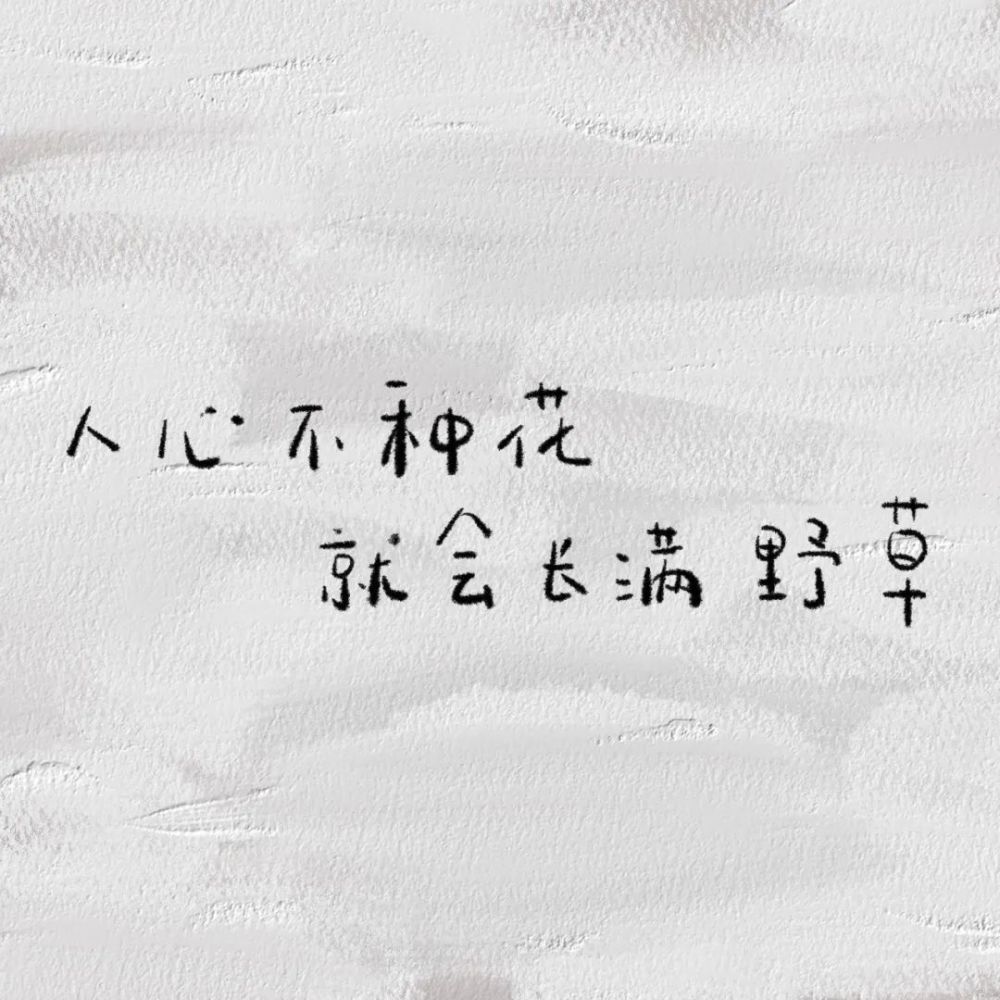 人心不种花
就会长满野草